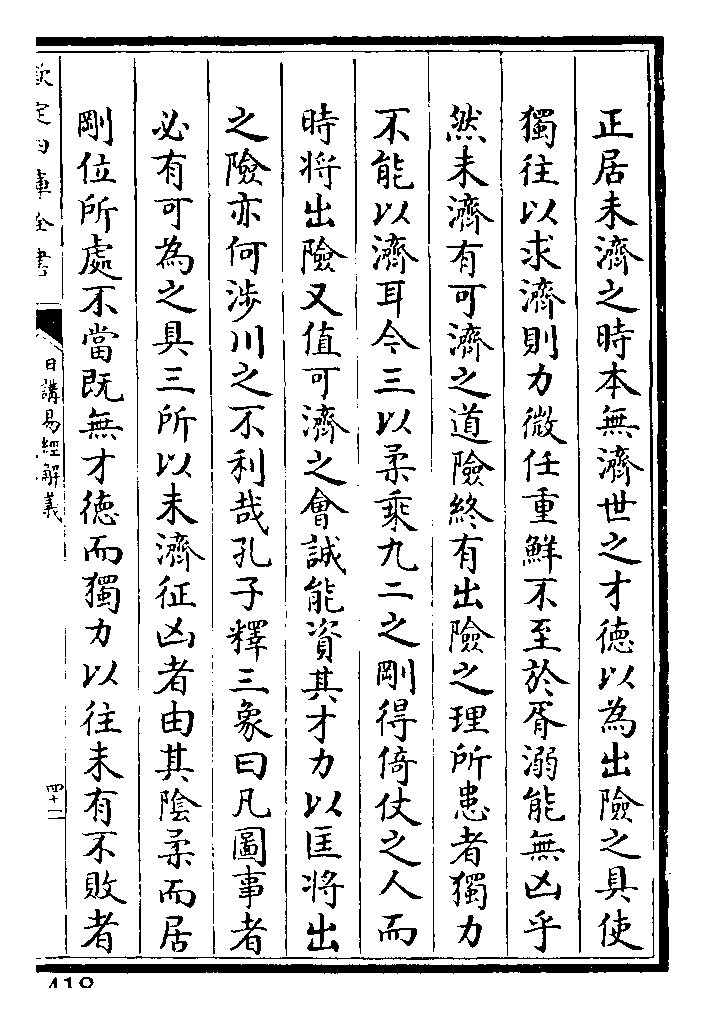 正居未濟之時本無濟世之才德以為出險之具使
獨往以求濟則力微任重鮮不至於胥溺能無凶乎
然未濟有可濟之道險終有出險之理所患者獨力
不能以濟耳今三以柔乘九二之剛得倚仗之人而
時將出險又值可濟之會誠能資其才力以匡將出
之險亦何涉川之不利哉孔子釋三象曰凡圖事者
必有可為之具三所以未濟征凶者由其陰柔而居
剛位所處不當既無才德而獨力以往未有不敗者
欽定四庫全書
日講易經解義
四十二
418